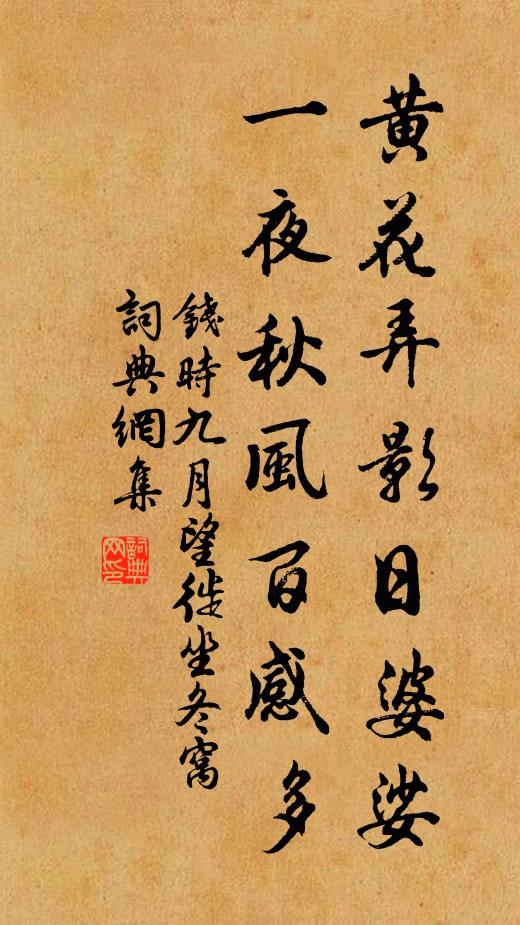 黃花弄影日婆娑
一夜秋風百感多
錢時九月望徙坐冬窩
詞典網集
詞典網印